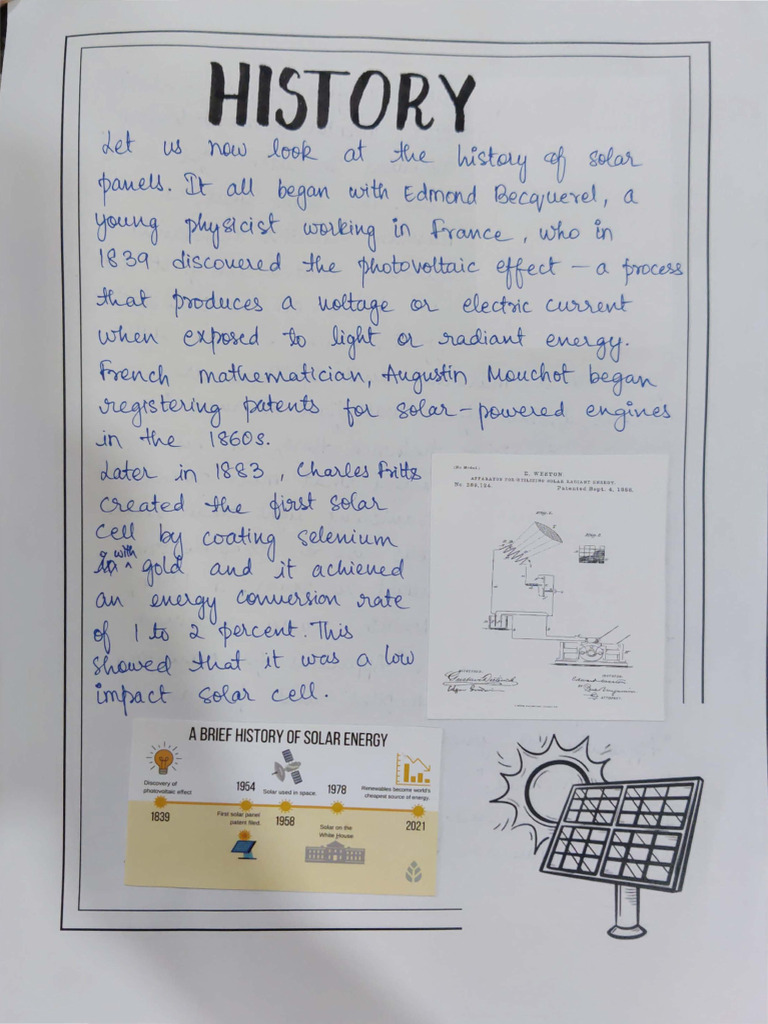 HISTORY
Let us now look at the history of solar
panels. It all began with Edmond Becquerel, a
young physicist working in France, who in
1839 discovered the photovoltaic effect – a process
that produces a voltage or electric current
when exposed to light or radiant energy.
French mathematician, Augustin Mouchot began
registering patents for solar-powered engines
in the 1860s.
Later in 1883, Charles Fritts
created the first solar
cell by coating selenium
with gold and it achieved
an energy conversion rate
of 1 to 2 percent. This
showed that it was a low
impact solar cell.
(No Model.)
E. WESTON.
APPARATUS FOR UTILIZING SOLAR RADIANT ENERGY.
Patented Sept. 4, 1888.
WITNESSES
INVENTOR
ATTORNEY
A BRIEF HISTORY OF SOLAR ENERGY
Discovery of
photovoltaic effect
1839
1954
First solar panel
patent filed.
Solar used in space.
1958
1978
Solar on the
White House
Renewables become world's
cheapest source of energy.
2021